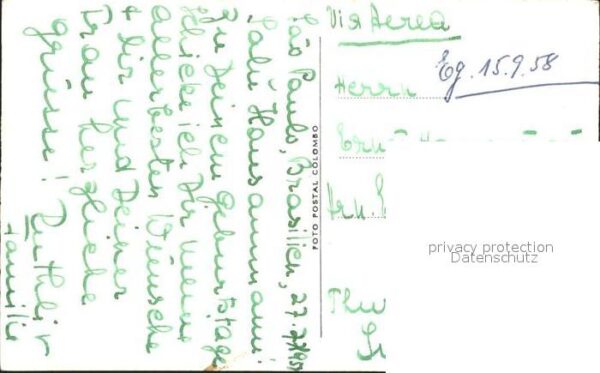 São Paulo, Brasilien, 27.
Salü Hansamann!
Zu Deinem Geburtstage
schicke ich Dir meine
allerbesten Wünsche
+ Dir und Deiner
Frau herzliche
Grüsse!
Familie
FOTO POSTAL COLOMBO
Via Aerea
Eg. 15.9.58
Herrn
privacy protection
Datenschutz